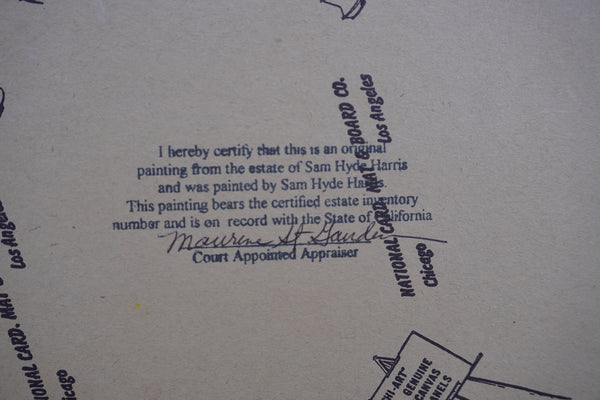 I hereby certify that this is an original
painting from the estate of Sam Hyde Harris
and was painted by Sam Hyde Harris.
This painting bears the certified estate inventory
number and is on record with the State of California
Maurine St. Gaudens
Court Appointed Appraiser
NATIONAL CARD. MAT & BOARD CO.
Chicago Los Angeles
IONAL CARD. MAT
icago Los Angele
HI-ART"
GENUINE
CANVAS
ANELS